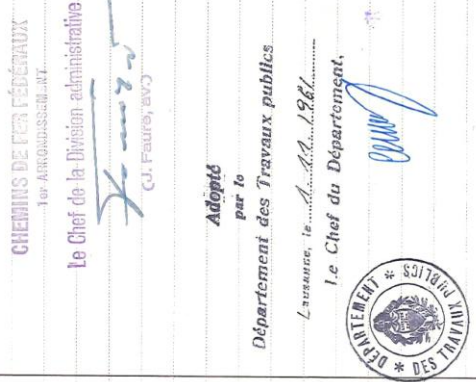 CHEMINS DE FER FÉDÉRAUX
1er ARRONDISSEMENT
Le Chef de la Division administrative
(J. Faure, av.)
Adopté
par le
Département des Travaux publics
Lausanne, le 1.11.1961
Le Chef du Département,
DÉPARTEMENT
DES TRAVAUX PUBLICS